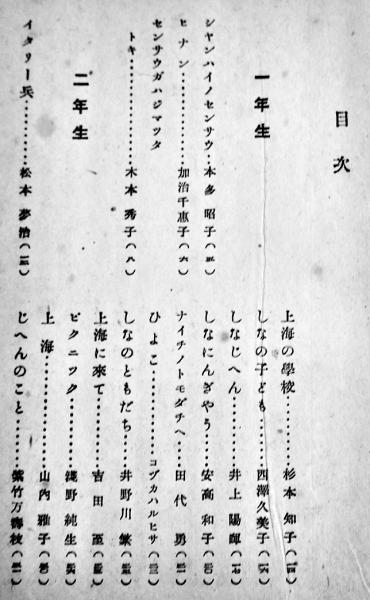 目次
一年生
シヤンハイノセンサウ……本多昭子
ヒナン……………加治千惠子(六)
センサウガハジマツタ
トキ……………木本秀子(八)
二年生
イタリー兵…………松本夢治
上海の學校………杉本知子(一四)
しなの子ども………西澤久美子(一六)
しなじへん…………井上陽輝(一七)
しなにんぎやう……安高和子
ナイチノトモダチヘ……田代勇
ひよこ……………コヅカハルヒサ
しなのともだち……井野川繁
上海に來て…………吉田至
ピクニツク…………淺野純生
上海………………山内雅子
じへんのこと………紫竹万壽枝